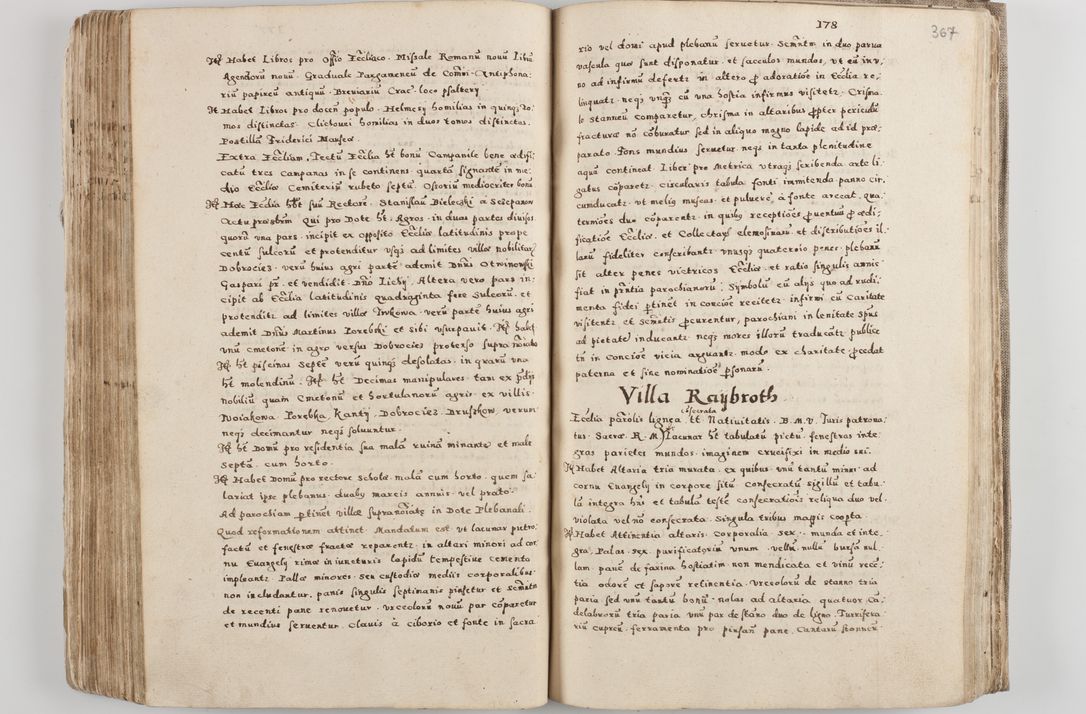 Itē Habet Libros pro Offō Eccłiaco. Missale Romanū nouū Libū
Agendorū nouū. Graduale Pargameneū de Com̄i. Antiphona:
riū papireū antiquū. Breuariū Crac: loco psaltery
It Habet Libros pro docen̄ populo. Helmesy homilias in quinq̨ to:
mos distinctas. Clichouei homilias in duos tomos distinctas.
Postillā Friderici Nauseæ
Extra Eccliam. Tectū Ecclia ht bonū Campanile bene ædifi:
catū tres Campanas in se continens quartā signantē in me:
dio Eccliæ Cemiteriū rubeto septū. Ostoriū mediocriter bonū
Itē Hæc Ecclia hēt suū Rectorē. Stanislaū Bielecski a Sczepanow
Actu præsbrm Qui pro Dote ht. Agros. in duas partes diuisos
quorū vna pars. incipit ex opposito Eccliæ latitudinis prope
centū sulcorū et protenditur usq̨ ad limites villæ nobilitar̄
Dobrocies. verū huius agri partē ademit Dn̄us Otwinowski
Gaspari pr. et vendidit. Dn̄o Lichy. Altera vero pars in:
cipit ab Ecclia latitudinis quadraginta fere sulcorū. et
protenditr ad limites villæ Iwkowa. verū partē huius agri
ademit Dn̄us Martinus Porebski et sibi vsurpauit. Itē habet
vnū cmetonē in agro versus Dobrocies protenso supra nōiato
Itē ht piscinas septē verū quinq̨ desolatas. in quarū vna
ht molendinū. Itē ht Decimas manipulares. tam ex pdijs
nobiliū quam Cmetonū et hortulanorū agris. ex villis.
Woiakowa Porebka Kanty. Dobrociez. Druszkow, verum
neq̨ decimantur neq̨ soluuntur.
Itē ht Domū pro residentia sua malā ruinā minantē et male
septā. cum horto.
Itē Habet Domū pro rectore Scholæ. malā cum horto. quem sa:
lariat ipse plebanus. duabȝ marcis annuis. vel prato.
Ad parochiam ptinet villæ supranōiatę in Dote Plebanali.
Quod reformationem attinet. Mandatum est. vt lacunar putre:
factū et fenestræ fractæ reparentr. in altari minori ad cor:
nu Euangely rimæ in iuncturis lapidū tempestiue cemento
impleantr. Pallæ minores. seu custodiæ medijs corporalibus
non includantur. panis singulis septimanis pinsetur et sc̄mētm
de recenti pane renouetur. vrceolorū nouū par cōparetur
et mundius seruentur. Clauis à ciborio et fonte in sacra
178
367
rio vel domi apud plebanū seruetur. Sc̄mētm in duo parua
vascula quæ sunt disponatur. et sacculos mundos, vt cū in v:
no ad infirmū defertr in altero p adoratiōe in Ecclia re:
linquatr. neq̨ vnq̨ cū vna hostia infirmus visitetr. Crisma:
le stanneū comparetur, chrisma in altaribus ppter periculū
fracturæ nō cōburatur sed in aliquo magno lapide ad id præ:
parato. Fons mundius seruetur. neq̨ in tanta plenitudine
aquā contineat. Liber pro Metrica vtraq̨ scribenda arte li:
gatus cōparetr. circularis tabula fonti immitenda panno cir:
cumducatr. vt melig muscas. et puluerē à fonte arceat, qua:
terniões duo cōparentr. in quibȝ receptiões puentus p ædi:
ficatiōe Eccliæ. et Collectaȝ elemosinarū. et distributiões il:
larū fideliter conscribantr. vnusq̨ quaternio penes plebanū
sit. alter penes victricos Eccliæ. et ratio singulis annis
fiat in pn̄tia parochianorū. Symbolū cū alijs quæ ad rudi:
menta fidei ptinēt in conciōe recitetr. infirmi cū Caritate
visitentr. et sc̄mētis pcurentur, parochiani in lenitate spūs
ad pietatē inducantr. neq̨ mores illorū traducātr. publice
tn̄ in Conciōe vicia arguantr. modo ex charitate pcedat
paterna. et sine nominatiōe psonarū.
Villa Raybroth
Ecclia parōlis lignea cōsecrata tt Natiuitatis. B.M.V. Iuris patrona:
tus. Sacræ. R.M. Lacunar ht tabulatū pictū fenestras inte:
gras parietes mundos. imaginem crucifixi in medio sui.
Itē Habet Altaria tria murata. ex quibus vnū tantū minus ad
cornu Euangely in corpore sitū consecratū sigillū et tabu:
lā integra hn̄s. et tabulā testē consecratiōis. reliqua duo vel
violata vel nō consecrata. Singula tribus mappis coopta.
Itē Habet Attinentia altaris. Corporalia sex. munda et inte:
gra. Palas sex. purificatoriū vnum. vellū nullū bursā nul:
lam. panē de farina hostiatim non mendicata et vinū recē:
tia odorē et saporē retinentia. vrceolorū de stanno tria
paria sed vnū tantū bonū. nolas ad altaria quatuor. Cā:
delabrorū tria paria vnū par de stāno duo de ligno. Turrifera:
riū cupreū. ferramenta pro pinsan̄ pane. Cantarū stanneū